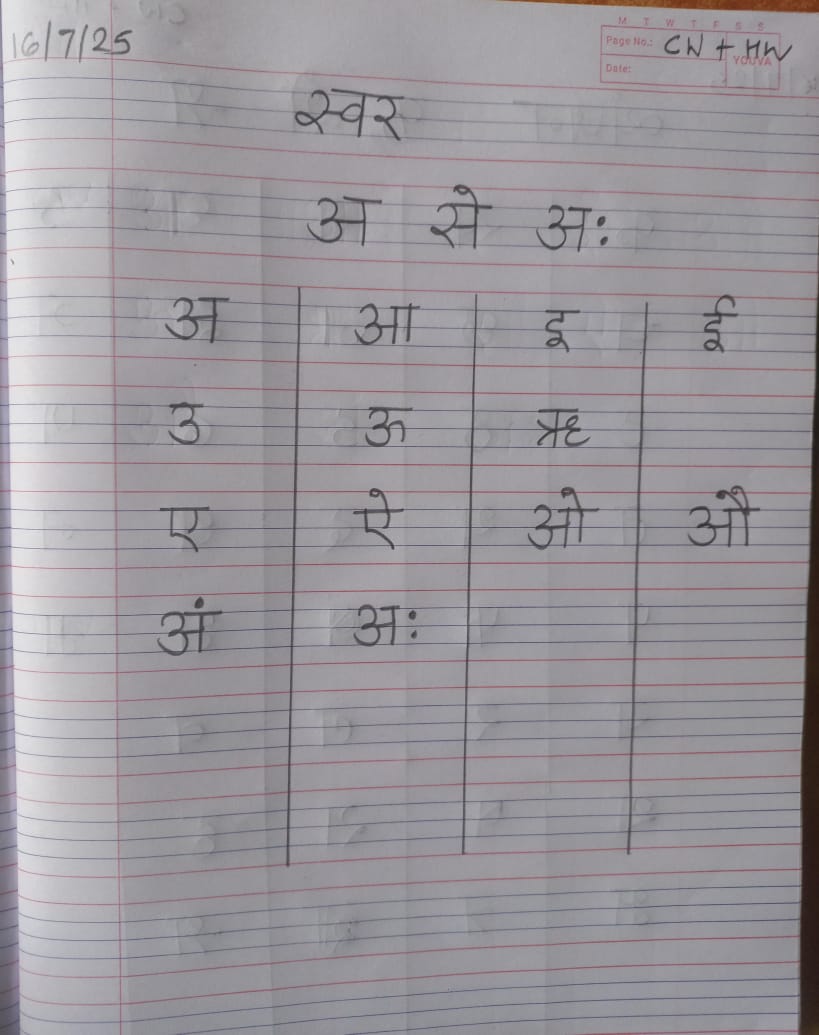 M T W T F S S
16/7/25 Page No.: CW + HW
YOUVA
Date:
स्वर
अ से अः
अ आ इ ई
उ ऊ ऋ
ए ऐ ओ औ
अं अः